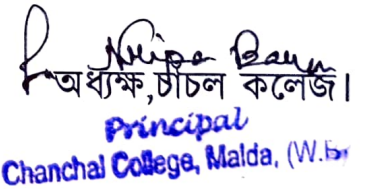 অধ্যক্ষ, চাঁচল কলেজ।
Principal
Chanchal College, Malda, (W.B)